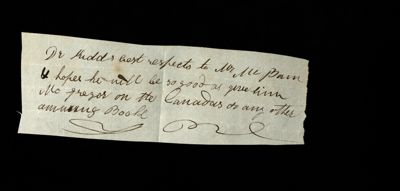 Dr Kidds best respects to Mr McBain
& hopes he will be so good as give him
McGregor on the Canadas or any other
amusing Book